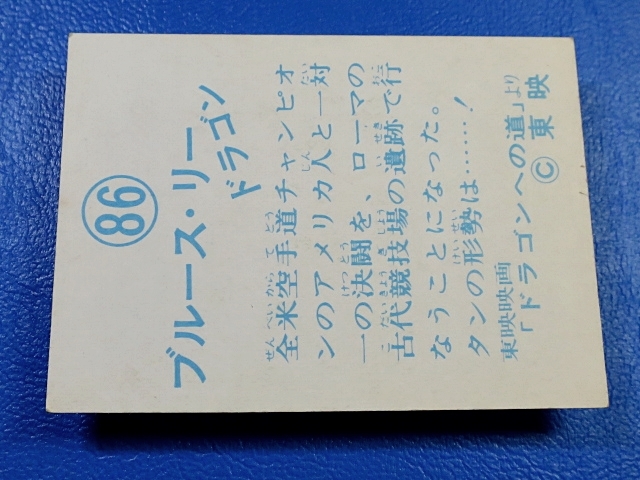 86
ブルース・リー
ドラゴン
全米空手道チャンピオ
ンのアメリカ人と一対
一の決闘を、ローマの
古代競技場の遺跡で行
なうことになった。
タンの形勢は……!
東映映画
「ドラゴンへの道」より
©東映